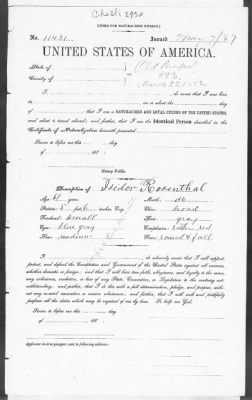 [FORM FOR NATURALIZED CITIZEN.]
No. 11421 Issued Mar 7/87
UNITED STATES OF AMERICA.
State of
County of
March 22, 1882
I, do swear that I was born
in on or about the day of
that I am a NATURALIZED AND LOYAL CITIZEN OF THE UNITED STATES,
and about to travel abroad; and further, that I am the Identical Person described in the
Certificate of Naturalization herewith presented.
Sworn to before me, this day
of 188
Notary Public.
Description of Isidor Rosenthal
Age: years Mouth: do
Stature: 5 feet inches, Eng. Chin: broad
Forehead: small Hair: gray
Eyes: blue gray Complexion: rather red
Nose: medium Face: round & full
I, do solemnly swear that I will support,
protect, and defend the Constitution and Government of the United States against all enemies,
whether domestic or foreign; and that I will bear true faith, allegiance, and loyalty to the same,
any ordinance, resolution, or law of any State, Convention, or Legislature to the contrary not-
withstanding; and further, that I do this with a full determination, pledge, and purpose, with-
out any mental reservation or evasion whatsoever; and further, that I will well and faithfully
perform all the duties which may be required of me by law. So help me God.
Sworn to before me, this day
of 188
Applicant desires passport sent to following address: